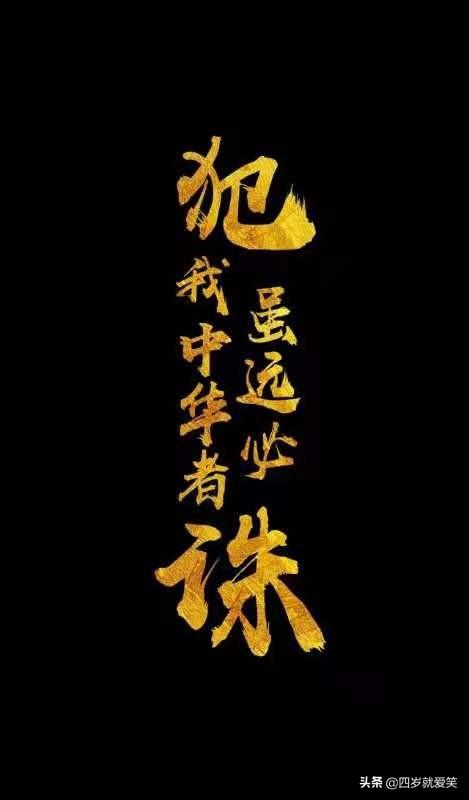 犯我中华者
虽远必诛
头条 @四岁就爱笑